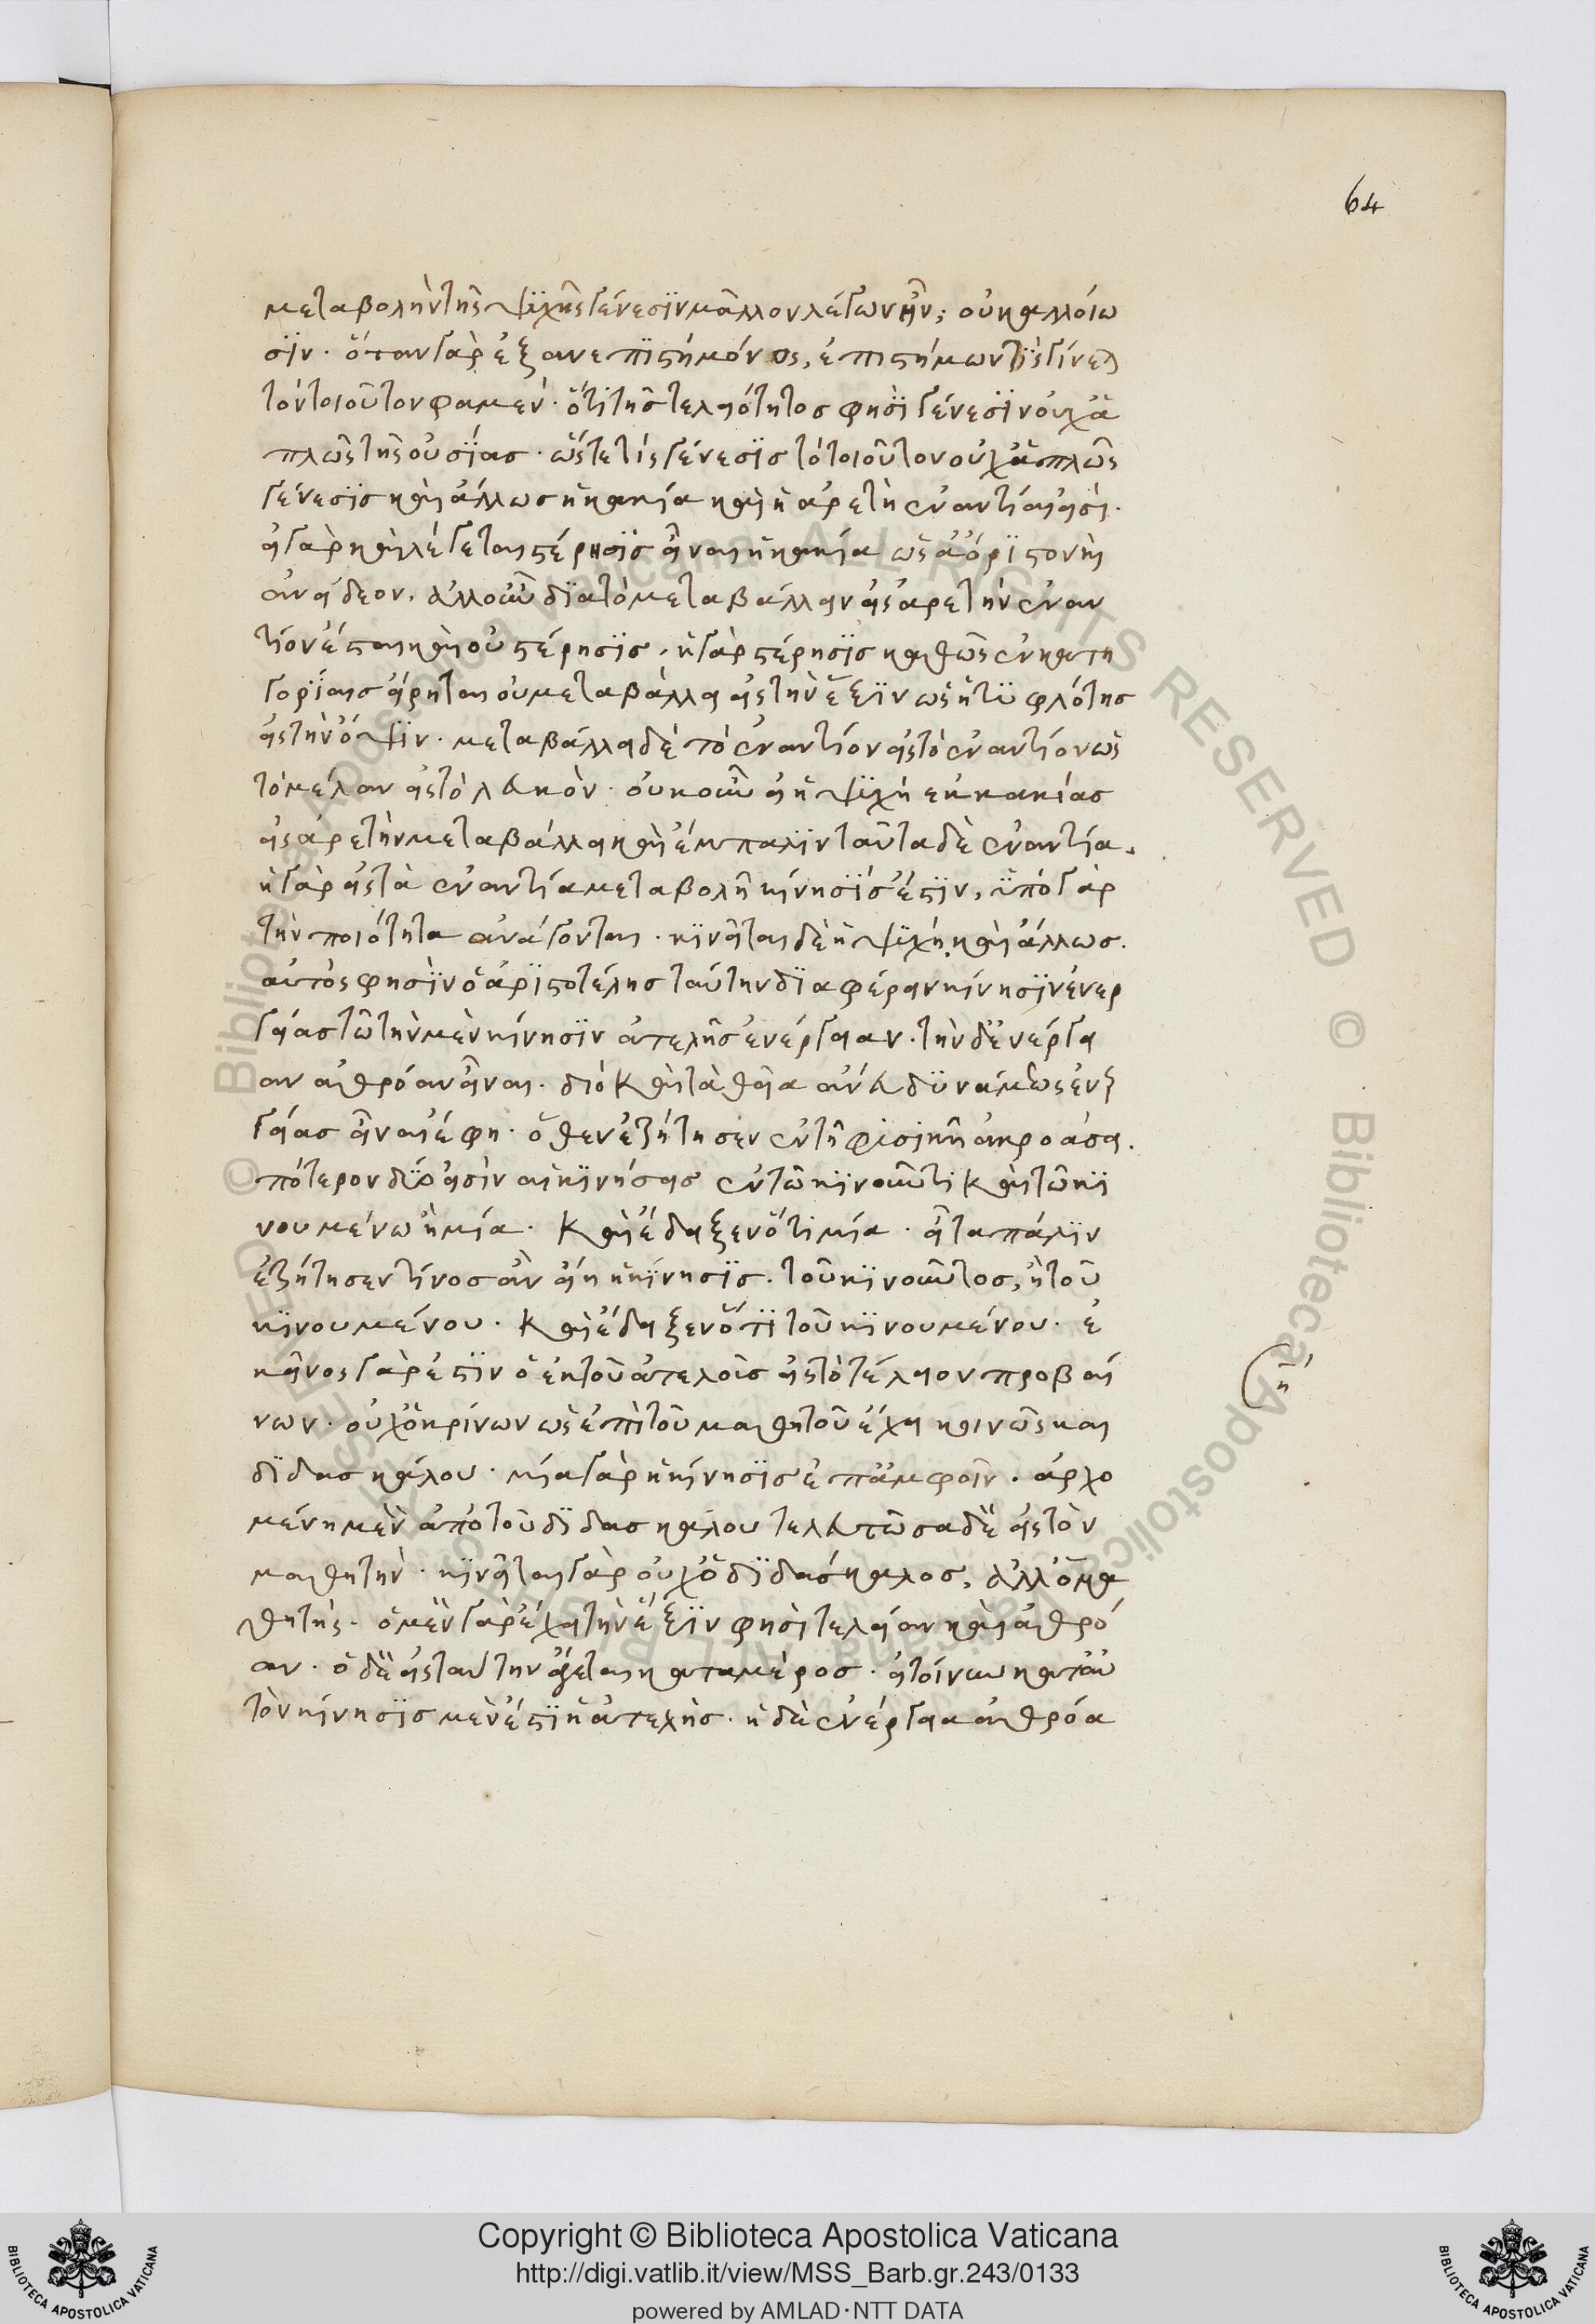 64
μεταβολὴν τῆς ψϋχῆς γένεσϊν μᾶλλον λέγων ἦν; οὐκ ἀλλοίω
σϊν. ὅταν γὰρ ἐξ ἀνεπϊστήμονος, ἐπιστήμων τϊς γίνεται
τὸν τοιοῦτον φαμὲν. ὅτι τῆς τελειότητος φησϊ γένεσϊν οὐχ ἁ
πλῶς τῆς οὐσϊας. ὥστε τὶς γένεσϊς τὸ τοιοῦτον οὐχ ἁπλῶς
γένεσϊς καὶ ἄλλως ἡ κακία καὶ ἡ ἀρετὴ ἐναντίαι εἰσὶ.
εἰ γὰρ καὶ λέγεται στέρησϊς εἶναι ἡ κακία ὡς ἀόρϊστον ἢ
ἀνείδεον. ἀλλ' οὖν δϊὰ τὸ μεταβάλλειν εἰς ἀρετὴν ἐναν
τίον ἐσται καὶ οὐ στέρησϊς. ἡ γὰρ στέρησϊς καθὼς ἐν κατη
γορϊαις εἴρηται οὐ μεταβάλλει εἰς τὴν ἕξϊν ὡς ἡ τϋφλότης
εἰς τὴν ὄψϊν. μεταβάλλει δὲ τὸ ἐναντίον εἰς τὸ ἐναντίον ὡς
τὸ μέλαν εἰς τὸ λευκὸν. οὐκοῦν εἰ ἡ ψϋχὴ ἐκ κακίας
εἰς ἀρετὴν μεταβάλλει καὶ ἔμπαλϊν ταῦτα δὲ ἐναντία.
ἡ γὰρ εἰς τὰ ἐναντία μεταβολὴ κίνησϊς ἐστϊν, ϋπὸ γὰρ
τὴν ποιότητα ἀνάγονται. κϊνεῖται δὲ ἡ ψϋχή καὶ ἄλλως.
αὐτὸς φησϊν ὁ ἀρϊστοτέλης ταύτην δϊαφέρειν κίνησϊν ἐνερ
γείας τῶ τὴν μὲν κίνησϊν ἀτελῆς ἐνέργειαν. τὴν δ' ἐνέργει
αν ἀθρόαν εἶναι. διὸ καὶ τὰ θεῖα ἄνευ δϋνάμεως ἐνερ
γείας εἶναι ἔφη. ὅθεν ἐζήτησεν ἐν τῆ φϋσϊκῆ ἀκροάσει.
πότερον δύο εἰσὶν αἱ κϊνήσεις ἐν τῶ κϊνοῦντι καὶ τῶ κϊ
νουμένω ἢ μία. καὶ ἔδειξεν ὅτι μία. εἶτα πάλϊν
ἐζήτησεν τίνος ἂν εἴη ἡ κίνησϊς. τοῦ κϊνοῦντος, ἢ τοῦ
κϊνουμένου. καὶ ἔδειξεν ὅτϊ τοῦ κϊνουμένου. ἐ
κεῖνος γὰρ ἐστϊν ὁ ἐκ τοῦ ἀτελοῦς εἰς τὸ τέλειον προβαί
νων. οὐχ ὁ κρίνων ὡς ἐπὶ τοῦ μαθητοῦ ἔχει κϊνῶς καὶ
δϊδασκάλου. μία γὰρ ἡ κίνησϊς ἐπ' ἀμφοῖν. ἀρχο
μένη μὲν ἀπὸ τοῦ δϊδασκάλου τελευτῶσα δὲ εἰς τὸν
μαθητὴν. κϊνεῖται γὰρ οὐχ ὁ δϊδάσκαλος, ἀλλ' ὁ μα
θητής. ὁ μὲν γὰρ ἔχει τὴν ἕξϊν φησὶ τελείαν καὶ ἀθρό
αν. ὁ δὲ εἰς ταύτην ἄγεται κατὰ μέρος. εἰ τοίνυν κατ' αὐ
τὸν κίνησϊς μὲν ἐστϊ ἡ ἀτελὴς. ἡ δὲ ἐνέργεια ἀθρόα
Copyright © Biblioteca Apostolica Vaticana
http://digi.vatlib.it/view/MSS_Barb.gr.243/0133
powered by AMLAD·NTT DATA